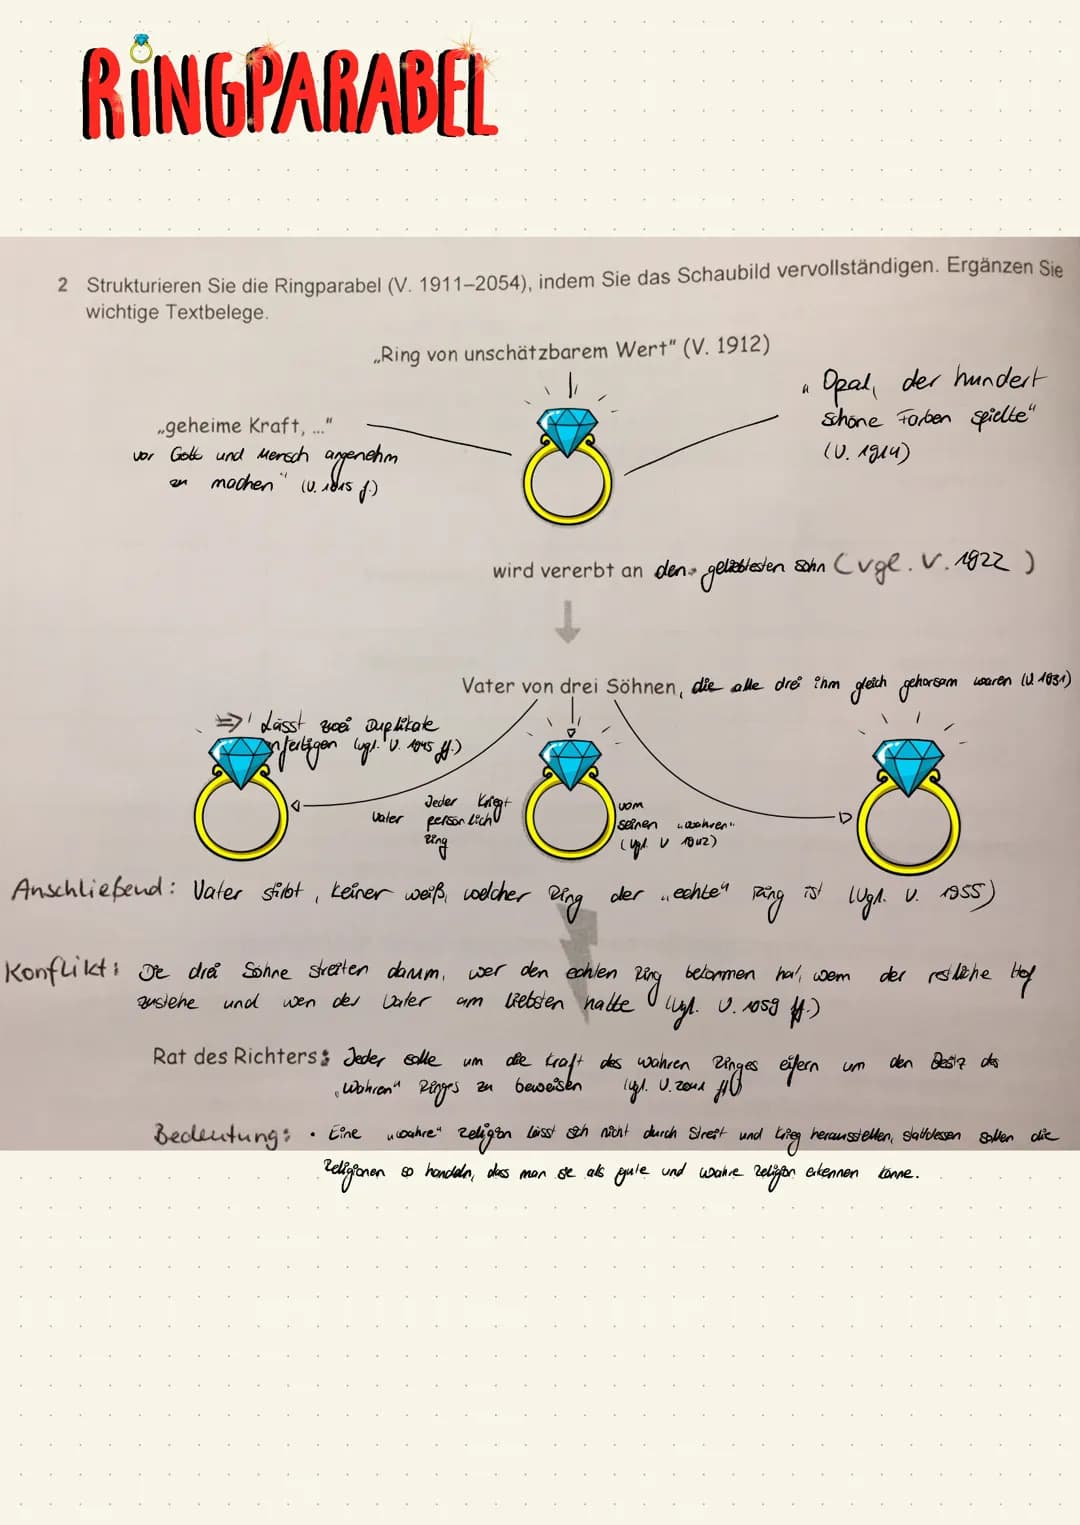 RINGPARABEL
2 Strukturieren Sie die Ringparabel (V. 1911–2054), indem Sie das Schaubild vervollständigen. Ergänzen Sie
wichtige Textbelege.
„Ring von unschätzbarem Wert" (V. 1912)
„Opal, der hundert
schöne Farben spielte"
(V. 1914)
„geheime Kraft, ..."
vor Gott und Mensch angenehm
zu machen" (V. 1915 f.)
wird vererbt an den geliebtesten Sohn (vgl. V. 1922)
Vater von drei Söhnen, die alle drei ihm gleich gehorsam waren (V. 1931)
=> Lässt zwei Duplikate
anfertigen (vgl. V. 1945 ff.)
Jeder kriegt vom
Vater persönlich seinen „wahren"
Ring (vgl. V 1942)
Anschließend: Vater stirbt, keiner weiß, welcher Ring der „echte" Ring ist (Vgl. V. 1955)
Konflikt: Die drei Söhne streiten darum, wer den echten Ring bekommen hat, wem der restliche Hof
zustehe und wen der Vater am liebsten hatte (vgl. V. 1959 ff.)
Rat des Richters: Jeder solle um die Kraft des wahren Ringes eifern um den Besitz des
„Wahren" Ringes zu beweisen (vgl. V. 2041 ff)
Bedeutung: • Eine „wahre" Religion lässt sich nicht durch Streit und Krieg herausstellen, stattdessen sollen die
Religionen so handeln, dass man sie als gute und wahre Religion erkennen könne.